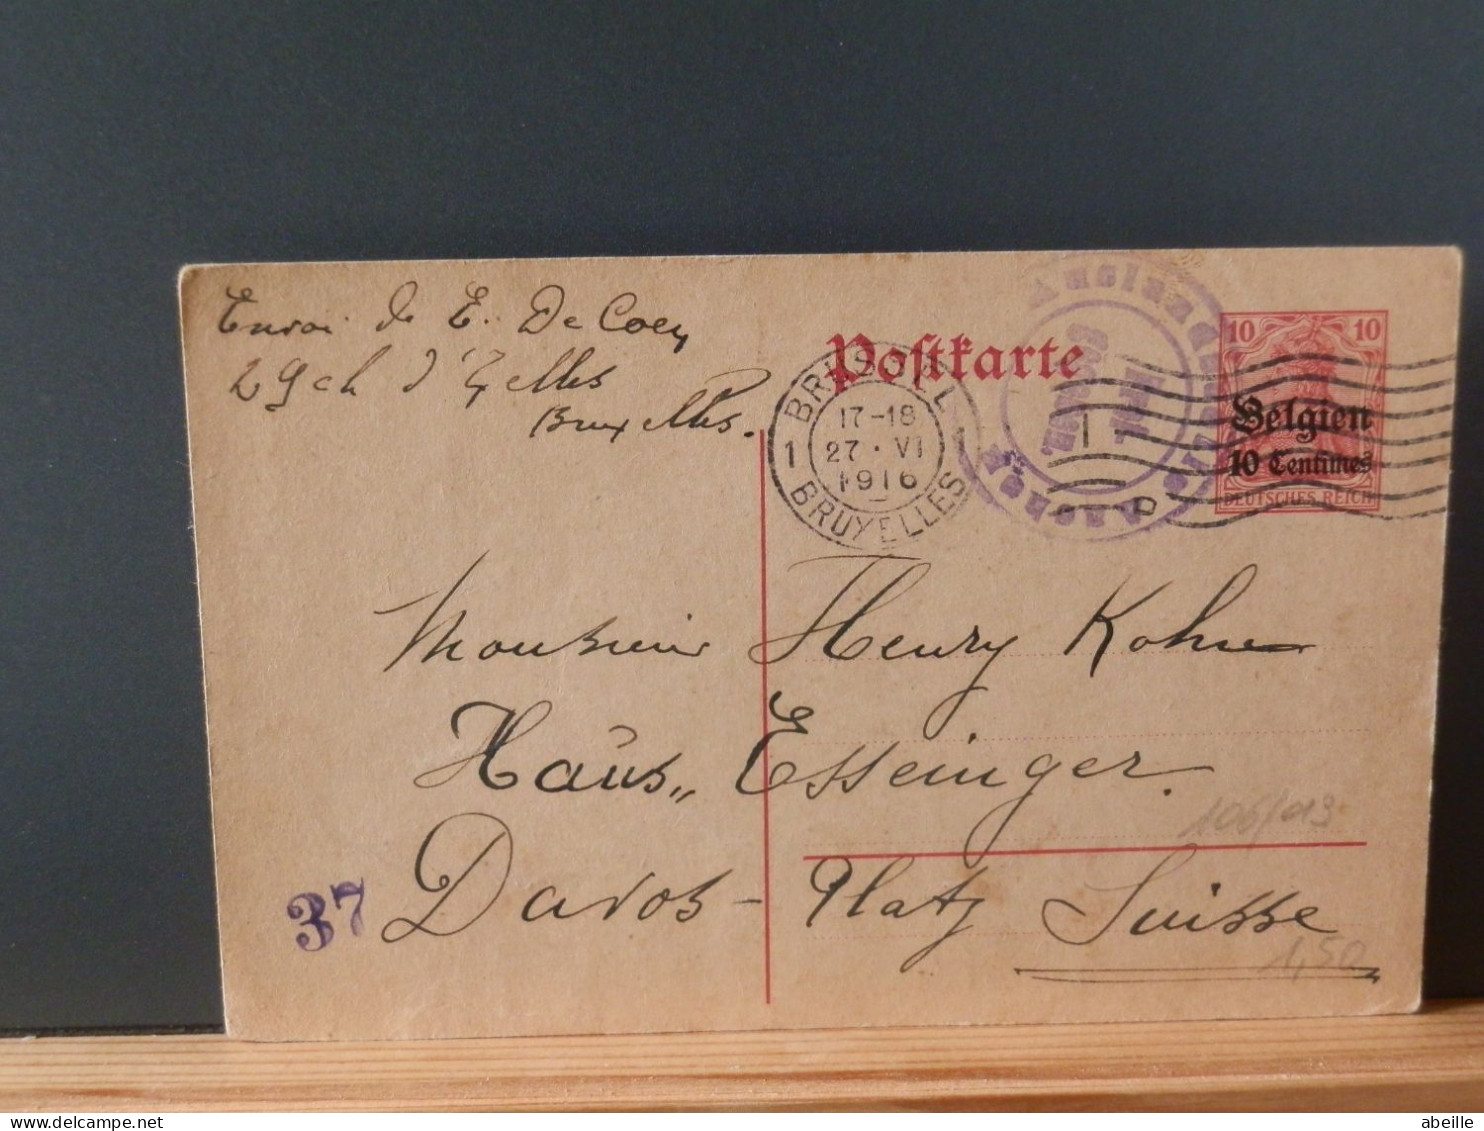 Envoi de E. De Coen
29 ch d'Ixelles
Bruxelles.
Postkarte
BRUSSEL
17-18
1 27·VI 1
1916
BRUYELLES
Auslandsstelle
Aachen
10 10
Belgien
10 Centimes
DEUTSCHES REICH
Monsieur Henry Kohn
Haus „ Esseinger.
106/013
37
Davos - Platz Suisse
1,50
delcampe.net
abeille